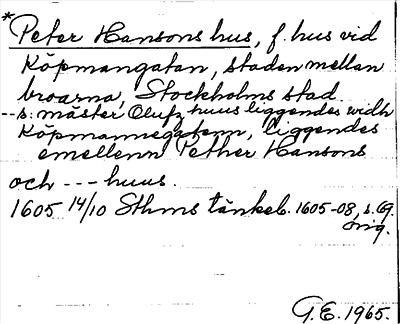 * Peter Hansons hus, f. hus vid
Köpmangatan, staden mellan
broarna, Stockholms stad.
--s. mäster Olufz huus liggendes widh
Köpmannegatenn, liggendes
emellenn Pether Hansons
och --- huus.
1605 14/10 Sthms tänkeb. 1605-08, s. 69.
orig.
G.E. 1965.